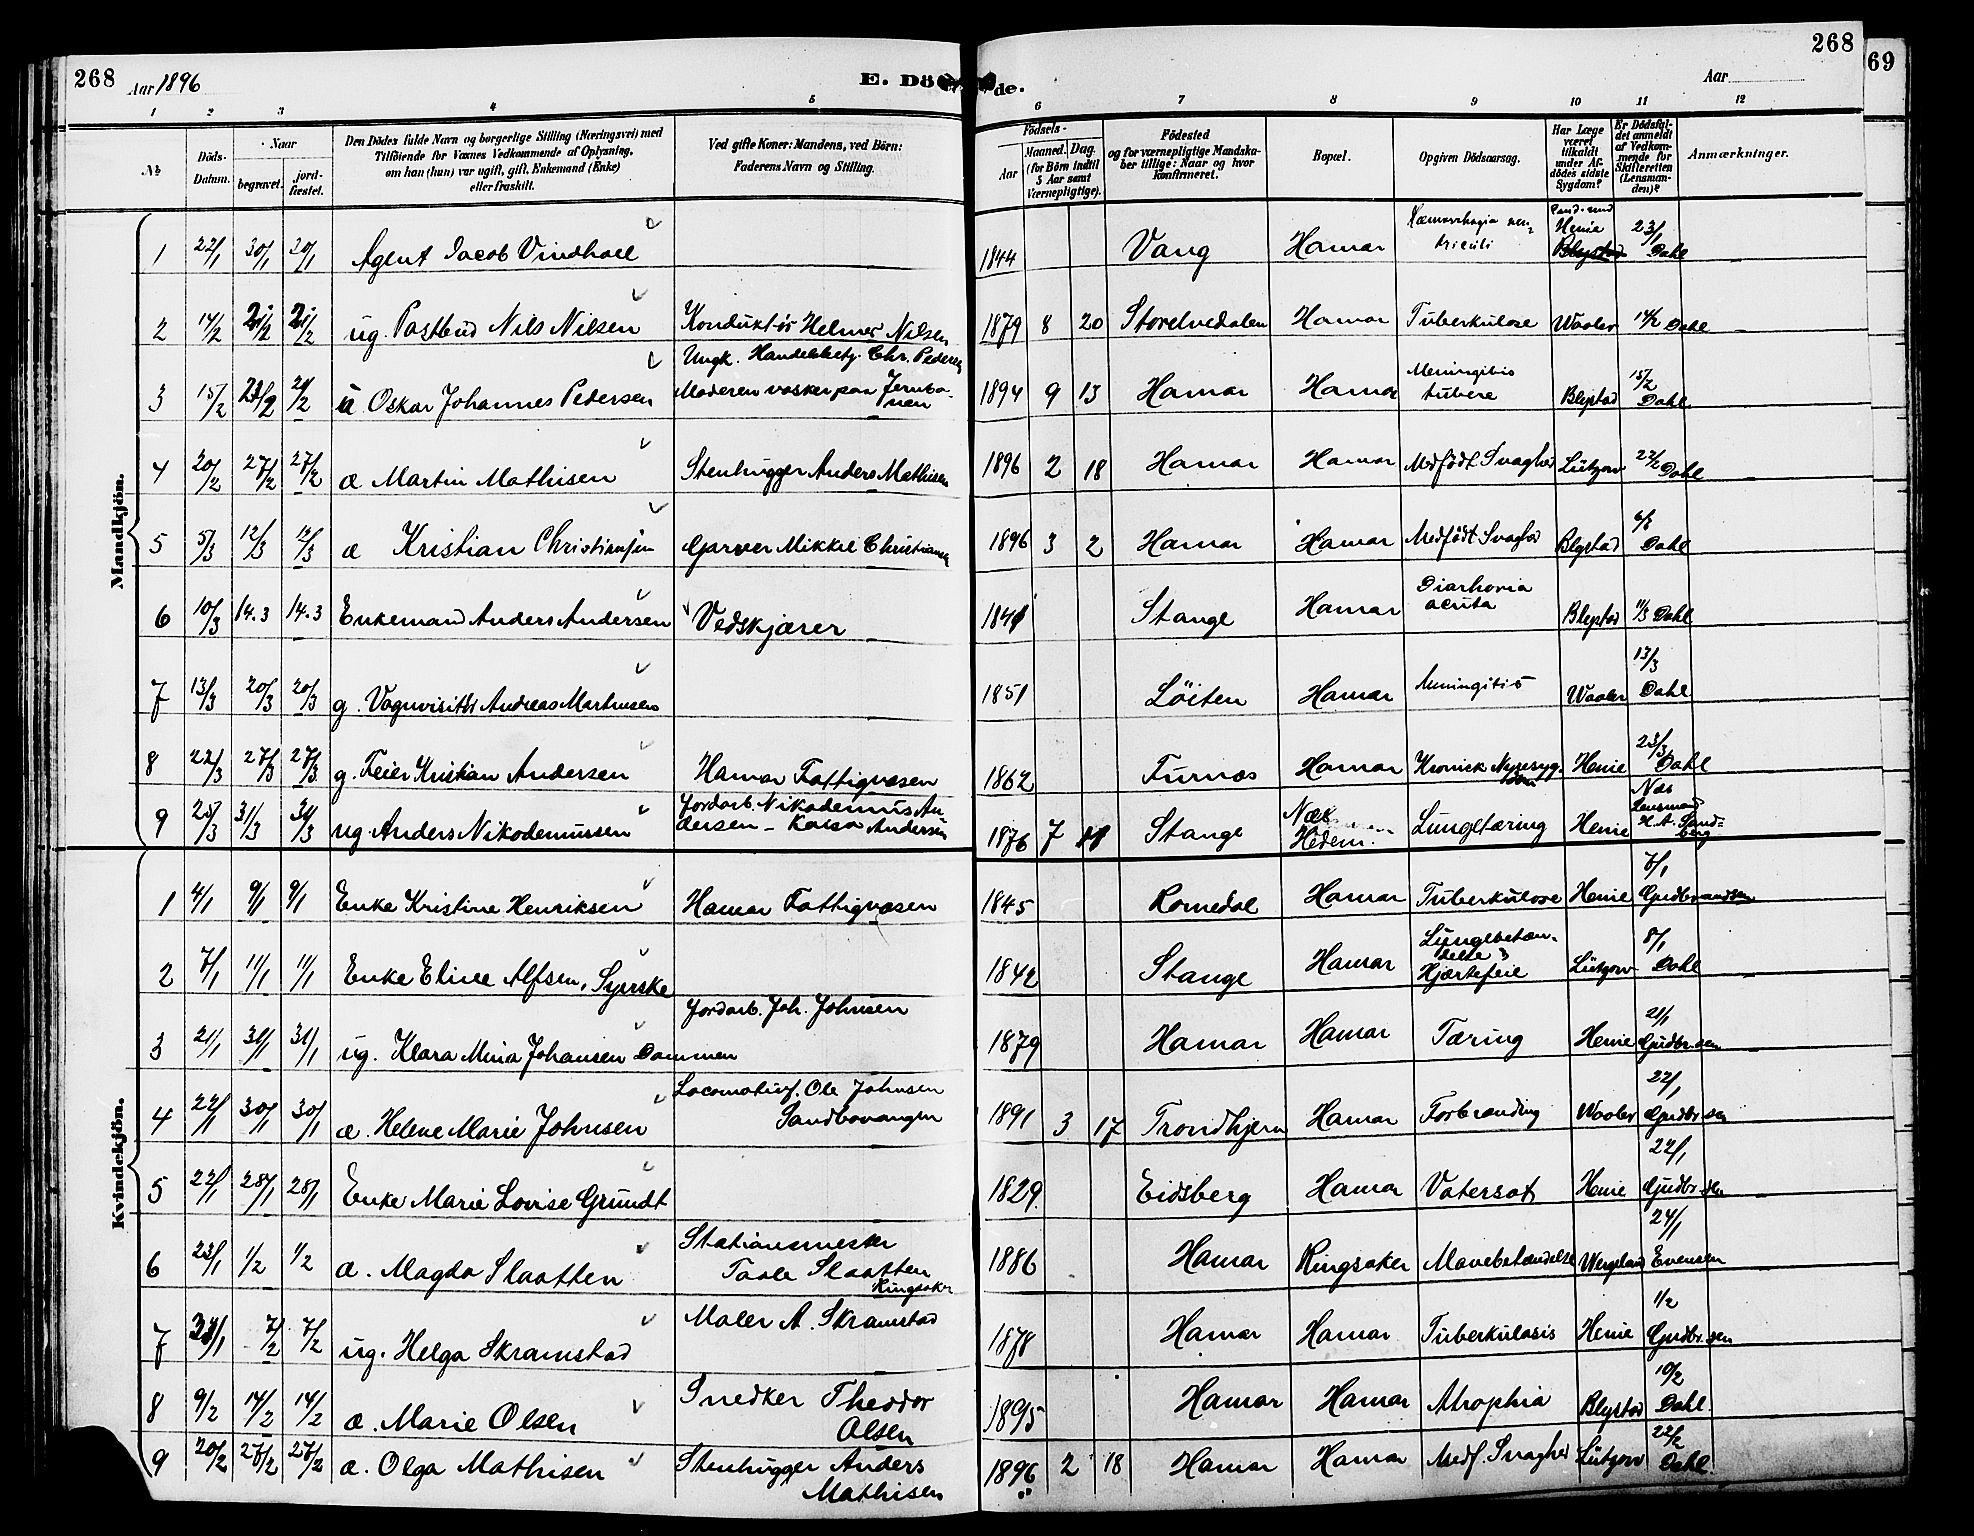 268
Aar 1896
E. Dö
1 2 3 4 5
№
Döds-Datum.
Naar
begravet.
jord-fæstet.
Den Dödes fulde Navn og borgerlige Stilling (Næringsvei) med
Tilföiende for Voxnes Vedkommende af Oplysning,
om han (hun) var ugift, gift, Enkemand (Enke)
eller fraskilt.
Ved gifte Koner: Mandens, ved Börn:
Faderens Navn og Stilling.
Mandkjön.
1 22/1 30/1 30/1 Agent Jacob Vindhall
2 14/2 21/2 21/2 ug. Postbud Nils Nilsen Konduktör Helmer Nilsen
3 15/2 21/2 21/2 u Oskar Johannes Pedersen
Ungk. Handelsbetj. Chr. Pedersen
Moderen vasker paa Jernba-
nen
4 20/2 27/2 27/2 æ Martin Mathisen Stenhugger Anders Mathisen
5 5/3 12/3 12/3 æ Kristian Christiansen Garver Mikkel Christiansen
6 10/3 14.3 14.3 Enkemand Anders Andersen Vedskjærer
7 13/3 20/3 20/3 g. Vognvisitör Andreas Marthinsen
8 22/3 27/3 27/3 g. Feier Kristian Andersen Hamar Fattigvæsen
9 25/3 31/3 31/3 ug. Anders Nikodemussen
Jordarb. Nikodemus An-
dersen - Andersen
Kvindekjön.
1 4/1 9/1 9/1 Enke Kristine Henriksen Hamar Fattigvæsen
2 7/1 11/1 11/1 Enke Eline Alfsen, Syerske
3 21/1 31/1 31/1 ug. Klara Mina Johansen Dammen
Jordarb. Joh. Johnsen
4 22/1 30/1 30/1 æ. Helene Marie Johnsen
Locomotivf. Ole Johnsen
Sandbovangen
5 22/1 28/1 28/1 Enke Marie Lovise Grundt
6 23/1 1/2 1/2 æ. Magda Slaatten
Stationsmester
Slaatten
Ringsaker
7 31/1 7/2 7/2 ug. Helga Skramstad Maler A. Skramstad
8 9/2 14/2 14/2 æ. Marie Olsen
Snedker Theodor
Olsen
9 20/2 27/2 27/2 æ. Olga Mathisen
Stenhugger Anders
Mathisen
268
69
de.
Aar
6 7 8 9 10 11 12
Födsels-
Aar
Maaned. Dag.
(for Börn indtil
5 Aar samt
Værnepligtige).
Födested
og for værnepligtige Mandska-
ber tillige: Naar og hvor
konfirmeret.
Bopæl.
Opgiven Dödsaarsag.
Har Læge
været
tilkaldt
under Af-
dödes sidste
Sygdom?
Er Dödsfal-
det anmeldt
af Vedkom-
mende for
Skifteretten
(Lensman-
den)?
Anmærkninger.
1844 Vang Hamar Hæmorrhagia ven-
triculi
Henie
Blystad
23/1
Dahl
1879 8 20 Storelvedalen Hamar Tuberkulose Waaler 14/2 Dahl
1894 9 13 Hamar Hamar Meningitis
tuberc
Blystad
15/2
Dahl
1896 2 18 Hamar Hamar Medfödt Svaghed Lützow 22/2 Dahl
1896 3 2 Hamar Hamar Medfödt Svaghed Blystad
6/3
Dahl
1841 Stange Hamar
Diarhoria
acuta
Blystad 11/3 Dahl
1851 Löiten Hamar Meningitis Waaler
13/3
Dahl
1862 Furnæs Hamar Kronisk Nyresyg-
dom
Henie
23/3
Dahl
1876 7 Stange
Næs
Hedem.
Lungetæring Henie
Næs
Lensmand
H. A. Sand-
berg
1845 Romedal Hamar Tuberkulose Henie
Gudbrandsen
1842 Stange Hamar
Lungebetæn-
delse &
Hjærtefeil
Lützow
8/1
Dahl
1879 Hamar Hamar Tæring Henie
21/1
Gudbr.sen
1891 3 17 Trondhjem Hamar Forbrænding Waaler
22/1
Gudbr.sen
1829 Eidsberg Hamar Vatersot Henie
22/1
Gudbr.sen
1886 Hamar Ringsaker Mavebetændelse Wergeland
24/1
Evensen
1878 Hamar Hamar Tuberkulosis Henie
1/2
Gudbr.sen
1895 Hamar Hamar Atrophia Blystad
10/2
Dahl.
1896 2 18 Hamar Hamar Medf. Svaghed Lützow
22/2
Dahl.